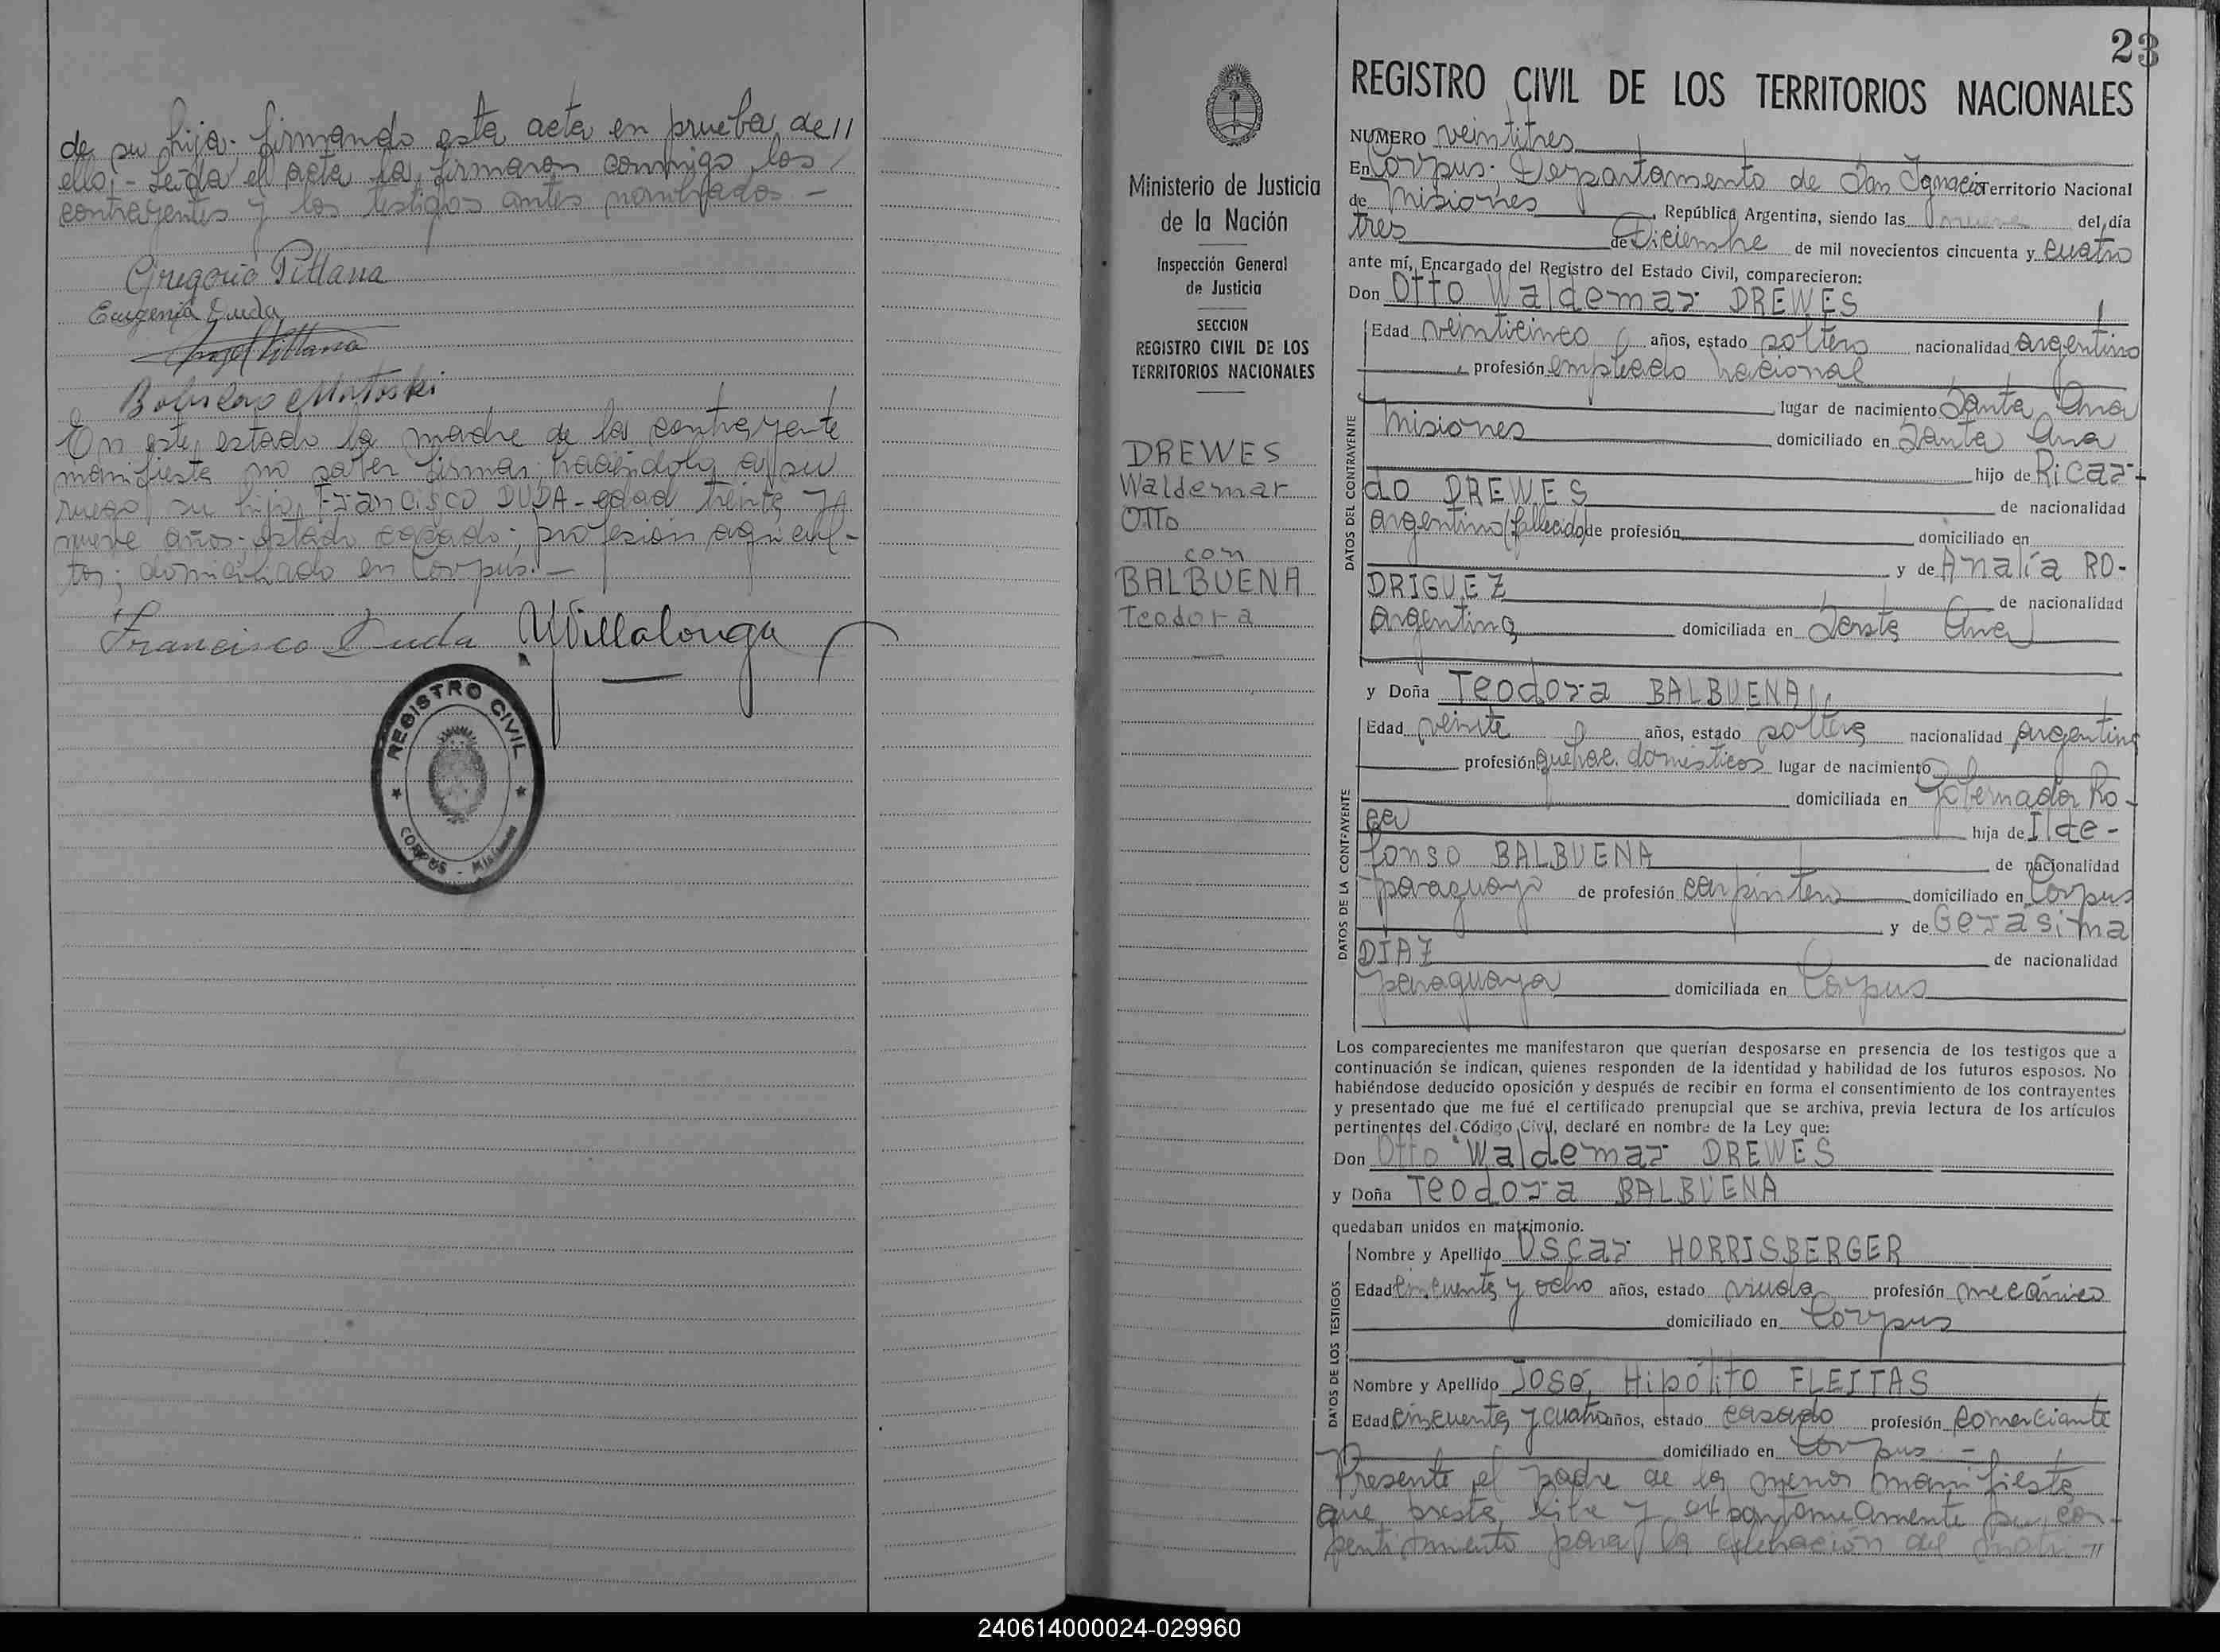 de su hija. firmando esta acta en prueba de //
ello.- Leída el acta la firmaron conmigo los /
contrayentes y los testigos antes nombrados.-
Gregorio Pittana
Eugenia Duda
Pittana
En este estado la madre de la contrayente
manifiesta no saber firmar; haciéndolo a su
ruego su hijo, Francisco DUDA - edad treinta y
nueve años; estado casado; profesión agricul-
tor; domiciliado en Corpus.-
Francisco Duda Villalonga
REGISTRO CIVIL
CORPUS - Misiones
23
Ministerio de Justicia
de la Nación
Inspección General
de Justicia
SECCION
REGISTRO CIVIL DE LOS
TERRITORIOS NACIONALES
DREWES
Waldemar
Otto
con
BALBUENA
Teodora
REGISTRO CIVIL DE LOS TERRITORIOS NACIONALES
NUMERO veintitres
En Corpus; Departamento de San Ignacio Territorio Nacional
de Misiones, República Argentina, siendo las nueve del día
tres de Diciembre de mil novecientos cincuenta y cuatro
ante mí, Encargado del Registro del Estado Civil, comparecieron:
Don Otto Waldemar DREWES
DATOS DEL CONTRAYENTE
Edad veinticinco años, estado soltero nacionalidad argentino
profesión empleado nacional
lugar de nacimiento Santa Ana
Misiones domiciliado en Santa Ana
hijo de Ricar-
do DREWES de nacionalidad
argentino (fallecido) de profesión domiciliado en
y de Analía RO-
DRIGUEZ de nacionalidad
argentina domiciliada en Santa Ana
y Doña Teodora BALBUENA
DATOS DE LA CONTRAYENTE
Edad veinte años, estado soltera nacionalidad argentina
profesión quehac. domésticos lugar de nacimiento
domiciliada en Gobernador Ro-
ca hija de Ilde-
fonso BALBUENA de nacionalidad
paraguayo de profesión carpintero domiciliado en Corpus
y de Gerásima
DIAZ de nacionalidad
paraguaya domiciliada en Corpus
Los comparecientes me manifestaron que querían desposarse en presencia de los testigos que a
continuación se indican, quienes responden de la identidad y habilidad de los futuros esposos. No
habiéndose deducido oposición y después de recibir en forma el consentimiento de los contrayentes
y presentado que me fué el certificado prenupcial que se archiva, previa lectura de los artículos
pertinentes del Código Civil, declaré en nombre de la Ley que:
Don Otto Waldemar DREWES
y Doña Teodora BALBUENA
quedaban unidos en matrimonio.
DATOS DE LOS TESTIGOS
Nombre y Apellido Oscar HORRISBERGER
Edad cincuenta y ocho años, estado viudo profesión mecánico
domiciliado en Corpus
Nombre y Apellido José Hipólito FLEITAS
Edad cincuenta y cuatro años, estado casado profesión comerciante
domiciliado en Corpus.-
Presente el padre de la menor manifiesta
que presta libre y expontáneamente su con-
sentimiento para la celebración del matri-//
240614000024-029960